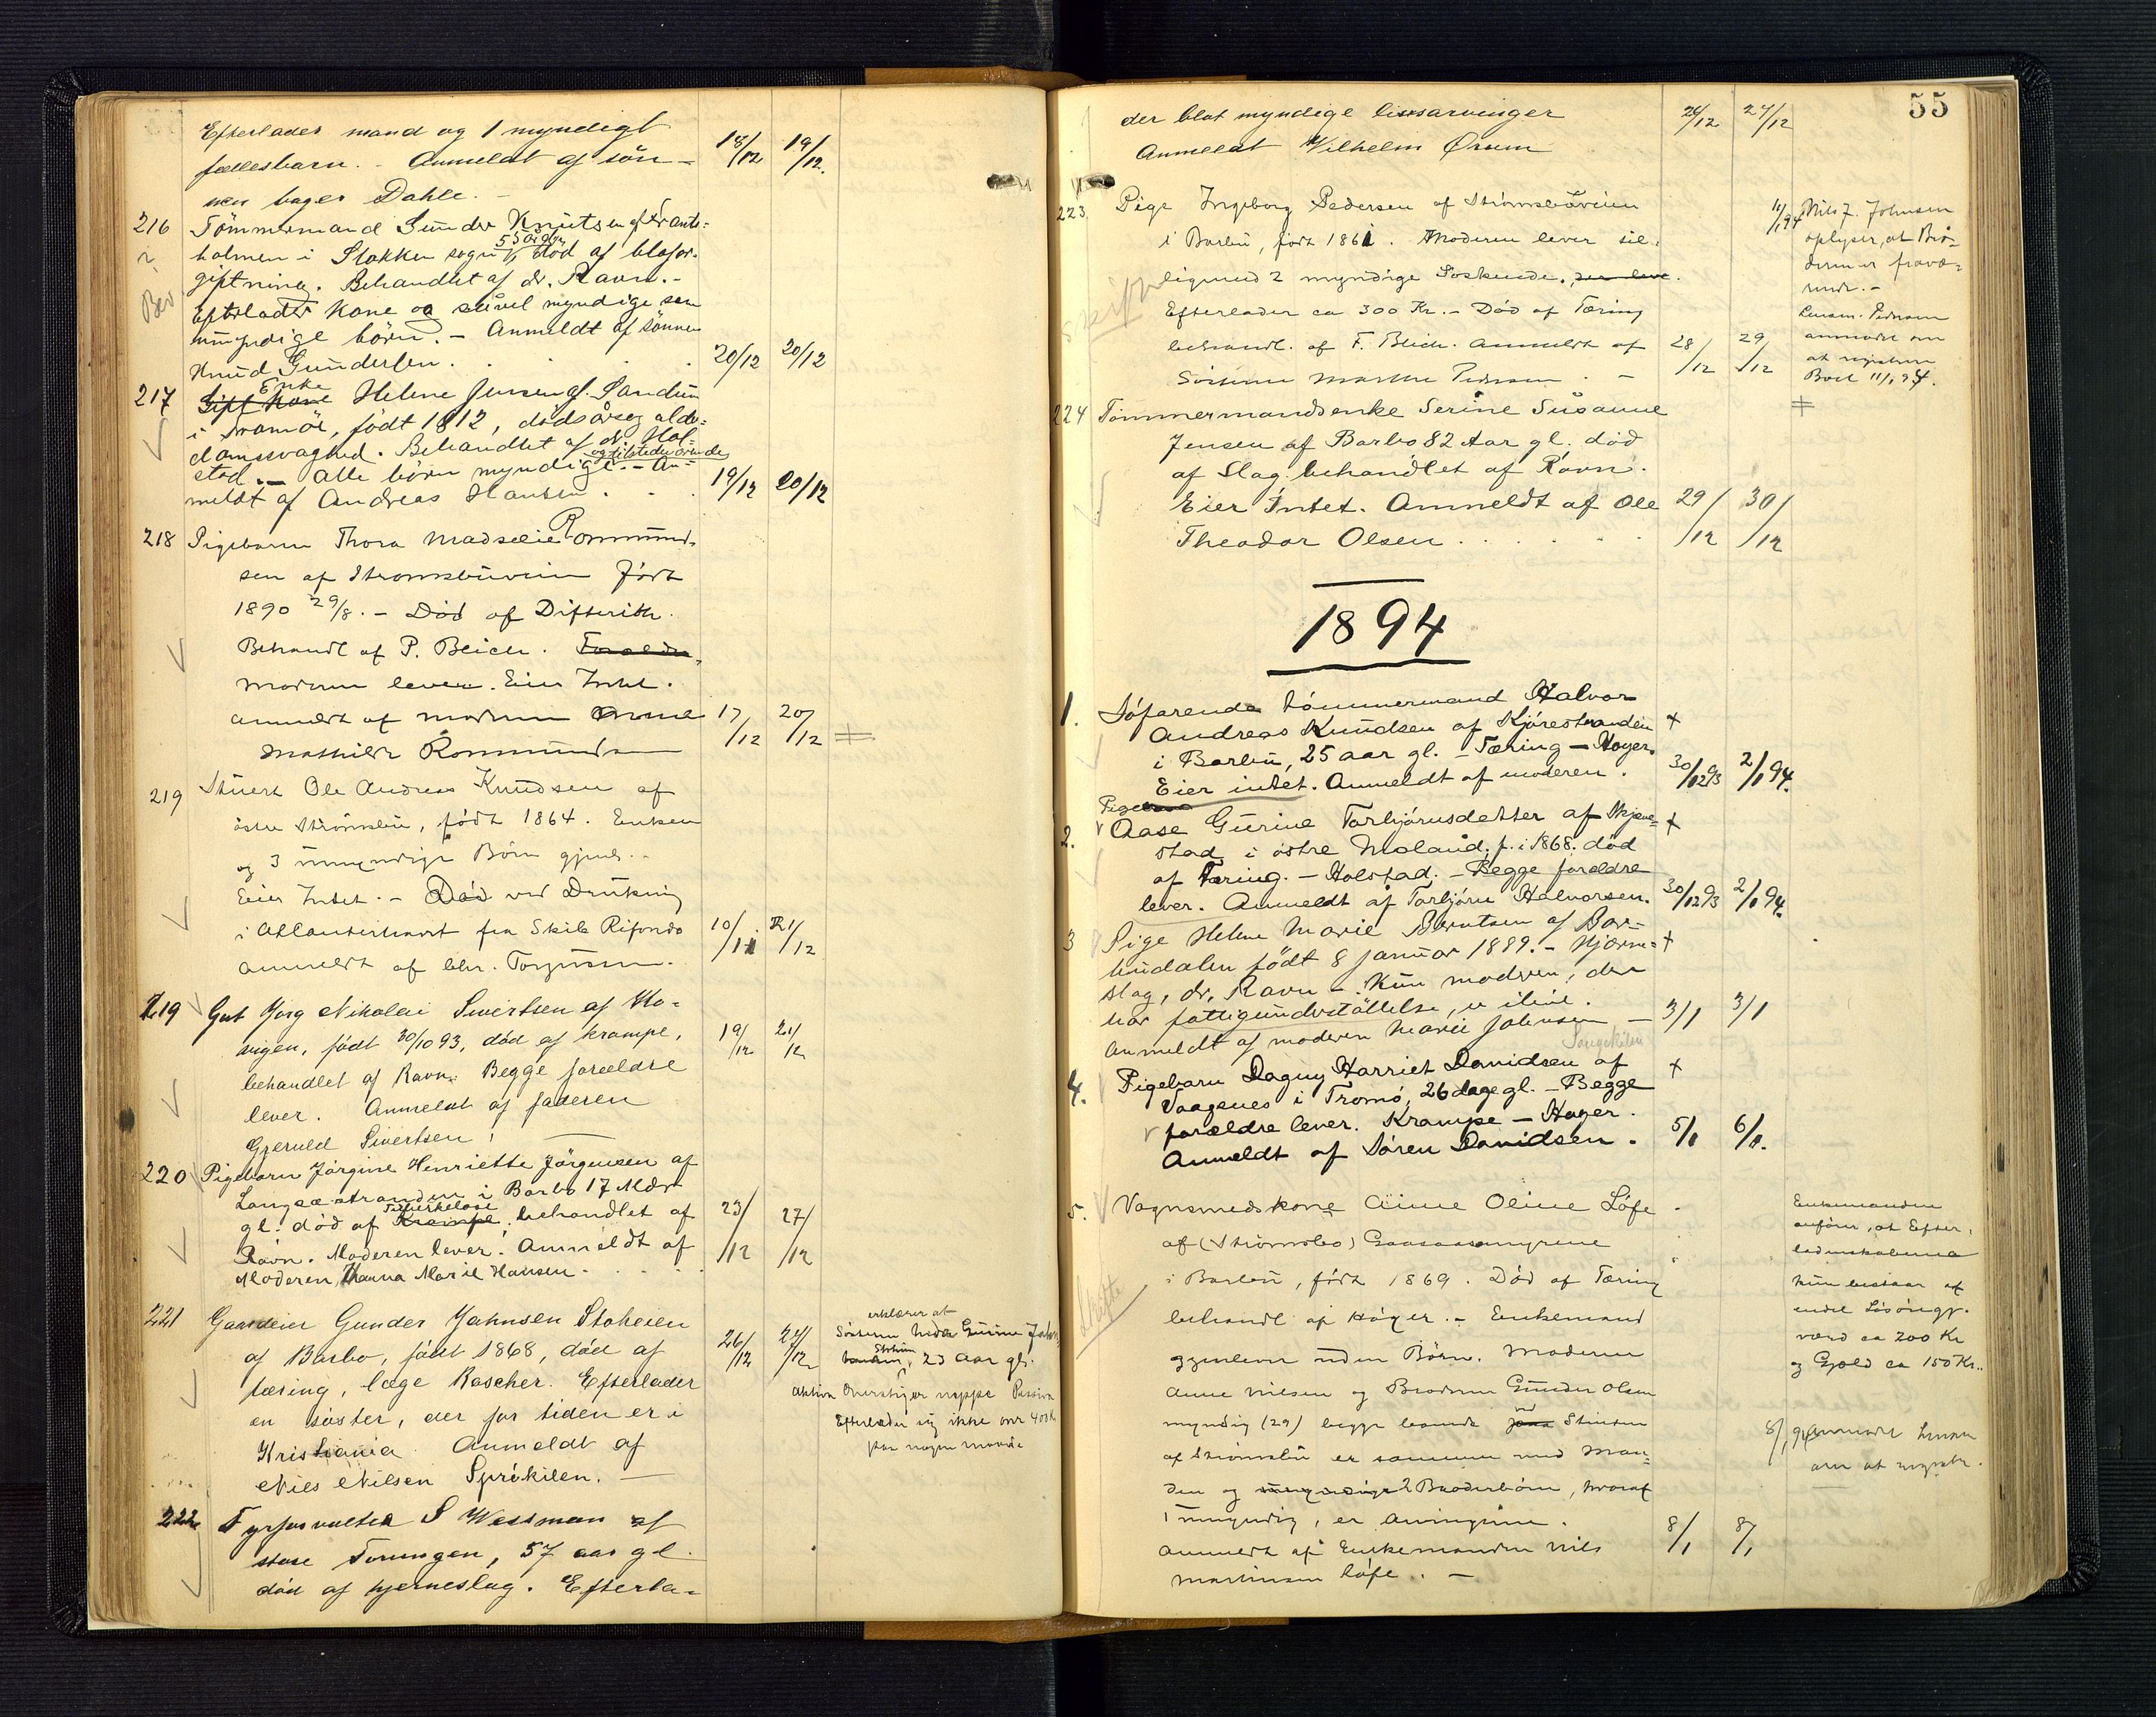 Efterlader mand og 1 myndigt
fællesbarn. - Anmeldt af søn- 18/12 19/12.
nen bager Dahle. -
216 Tömmermand Gunder Knutsen af
holmen i Stokken sogn, 55 år gl., død af blofor-
giftning. Behandlet af dr. Ravn. -
Efterlader kone og såvel myndige som
umyndige börn. - Anmeldt af sönnen
Knud Gundersen. 20/12 20/12
217 Gift Kone Enke Helene Jensen af Sandum
i Tromöe, født 1812, dödsårsag alder-
domssvaghed. Behandlet af dr. Hol-
stad. - Alle börn myndige og tilstedeværende. - An-
meldt af Andreas Hansen. 19/12 20/12
218 Pigebarn Thora Madselie Rommund-
sen af Strømsbuveien født
1890 29/8. - Død af Difterith.
Behandl af P. Bleich. Forældre
Moderen lever. Eier Intet.
Anmeldt af moderen Anne 17/12 20/12
Mathilde Rommundsen
219 Stuert Ole Andreas Knudsen af
östre Strömsbu, født 1864. Enken
og 3 umyndige Börn gjenl. -
Eier Intet. - Død ved Drukning
i Atlanterhavet fra Skib Rifondo 10/11 21/12
Anmeldt af Chr. Torjussen.
219 Gut Jörg Nikolai Sivertsen af Ho-
vigen, født 30/10 93, død af krampe, 19/12 21/12
behandlet af Ravn. Begge forældre
lever. Anmeldt af faderen
Gjeruld Sivertsen.
220 Pigebarn Jörgine Henriette Jörgensen af
Langsæstranden i Barbo 17 Mdr
gl. død af Krampe Tuberkelose, behandlet af 23/12 27/12
Ravn. Moderen lever. Anmeldt af
Moderen, Hanna Marie Hansen.
221 Gaardeier Gunder Jahnsen Stoheien
af Barbo, født 1868, død af 26/12 27/12
tæring, læge Rascher. Efterlader
en søster, der for tiden er i
Kristiania. Anmeldt af
Nils Nilsen Sprökilen. -
erklærer at
Søsteren Gurine
23 Aar gl.
Aktiva Overstiger neppe Passiva
Efterlader sig ikke over 400 Kr
paa nogen maade
222 Fyrforvalter S Wessman af
store Torungen, 57 aar gl.
død af hjerneslag. Efterla-
55
der blot myndige livsarvinger 26/12 27/12
Anmeldt Vilhelm Ørum
223. Pige Ingeborg Pedersen af Strömsbuveien
i Barbu, født 1861. Moderen lever til-
ligemed 2 myndige Søskende, der leve.
Efterlader ca 300 Kr. - Død af Tæring
behandl. af F. Bleich. Anmeldt af 28/12 29/12
Søsteren Marthe Pedersen. -
11/1 94 Nils J. Johnsen
oplyser, at Brö-
deren er fravæ-
rende. -
Lensm. Pedersen
anmodet om
at registrere
Boet 11/1 94.
224 Tømmermandsenke Serine Susanne
Jensen af Barbo 82 Aar gl. død
af Slag behandlet af Ravn.
Eier Intet. Anmeldt af Ole 29/12 30/12
Theodor Olsen
1894
1. Söfarende tömmermand Halvor
Andreas Knudsen af Kjörestranden
i Barbu, 25 aar gl. - Tæring - Høyer.
Eier intet. Anmeldt af moderen. 30/12 93 2/1 94.
2. Pigebarn Aase Gurine Torbjörnsdatter af Skjæve-
stad i östre Moland, f. i 1868. død
af Tæring. - Holstad. - Begge forældre
lever. Anmeldt af Torbjörn Halvorsen. 30/12 93 2/1 94.
3 Pige Helene Marie Berntsen af Bar-
budalen født 8 januar 1889. - Hjerne-
slag, dr. Ravn. - Kun moderen, der
har fattigunderstöttelse, er ilive.
Anmeldt af moderen Marie Johnsen - 3/1 3/1
Songekilen
4. Pigebarn Dagny Harriet Davidsen af
Vaagsnes i Tromö, 26 dage gl. - Begge
forældre lever. Krampe - Høyer.
Anmeldt af Sören Davidsen. 5/1 6/1.
5. Vognsmedskone Anne Oline Löfe
af (Strömsbo) Gaasaasmyrene
i Barbu, født 1869. Død af Tæring
behandl af Høyer. - Enkemand
gjenlever uden Börn. Moderen
Anne Nilsen og Broderen Gunder Olsen
myndig (29) begge boende ved Stinten
af Strömsbu er sammen med Man-
den og umyndige 2 Broderbörn, hvoraf
1 umyndig, er arvinger.
Anmeldt af Enkemanden Nils 8/1 8/1
Martinsen Löfe. -
Enkemanden
anförer, at Efter-
ladenskaberne
kun bestaar af
endel Lösöregj.
værd ca 200 Kr
og Gjæld ca 150 Kr.
8/1 94 anmodet Lensm
om at registr.
Skifte